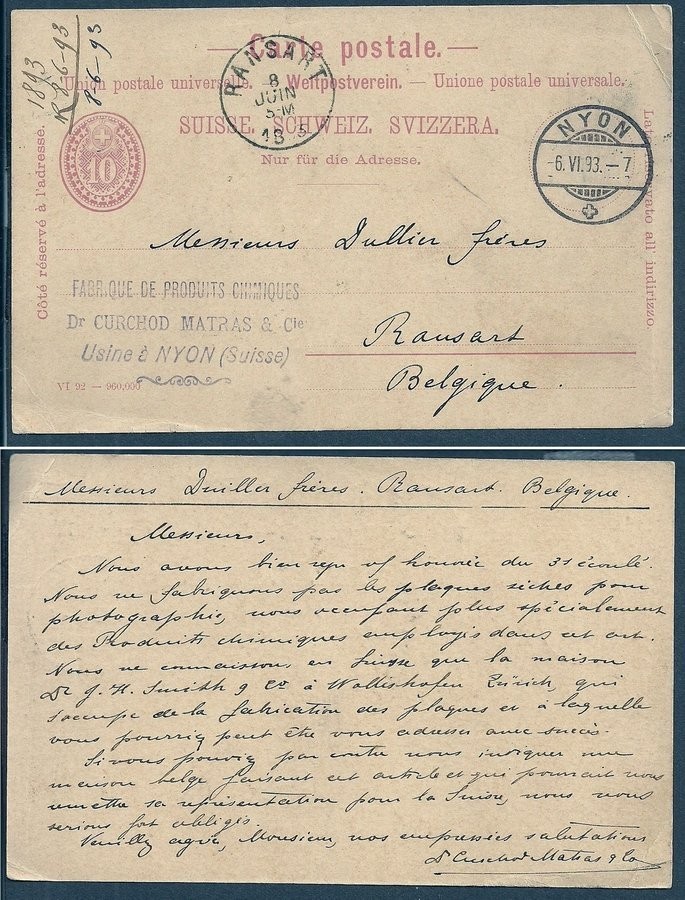 1893
R 8-6-93
8-6-93
Carte postale.
Union postale universelle. Weltpostverein. — Unione postale universale.
SUISSE. SCHWEIZ. SVIZZERA.
Nur für die Adresse.
Côté réservé à l'adresse.
10
RANSART
8
JUIN
5-M
NYON
-6.VI.93.-7
Messieurs Dullier frères
FABRIQUE DE PRODUITS CHIMIQUES
Dr CURCHOD MATRAS & Cie
Usine à NYON (Suisse)
Ransart
Belgique.
VI 92 — 960,000
Messieurs Duiller frères. Ransart. Belgique.
Messieurs,
Nous avons bien reçu v/ honorée du 31 écoulé.
Nous ne fabriquons pas les plaques sèches pour
photographie, nous occupant plus spécialement
des Produits chimiques employés dans cet art.
Nous ne connaissons en Suisse que la maison
Dr J. H. Smith & Co à Wollishofen Zürich, qui
s'occupe de la fabrication des plaques et à laquelle
vous pourriez peut être vous adresser avec succès.
Si vous pouviez par contre nous indiquer une
maison belge faisant cet article et qui pourrait nous
remettre sa représentation pour la Suisse, nous vous
serions fort obligés.
Veuillez agréer, Monsieur, nos empressées salutations
Dr Curchod Matras & Co